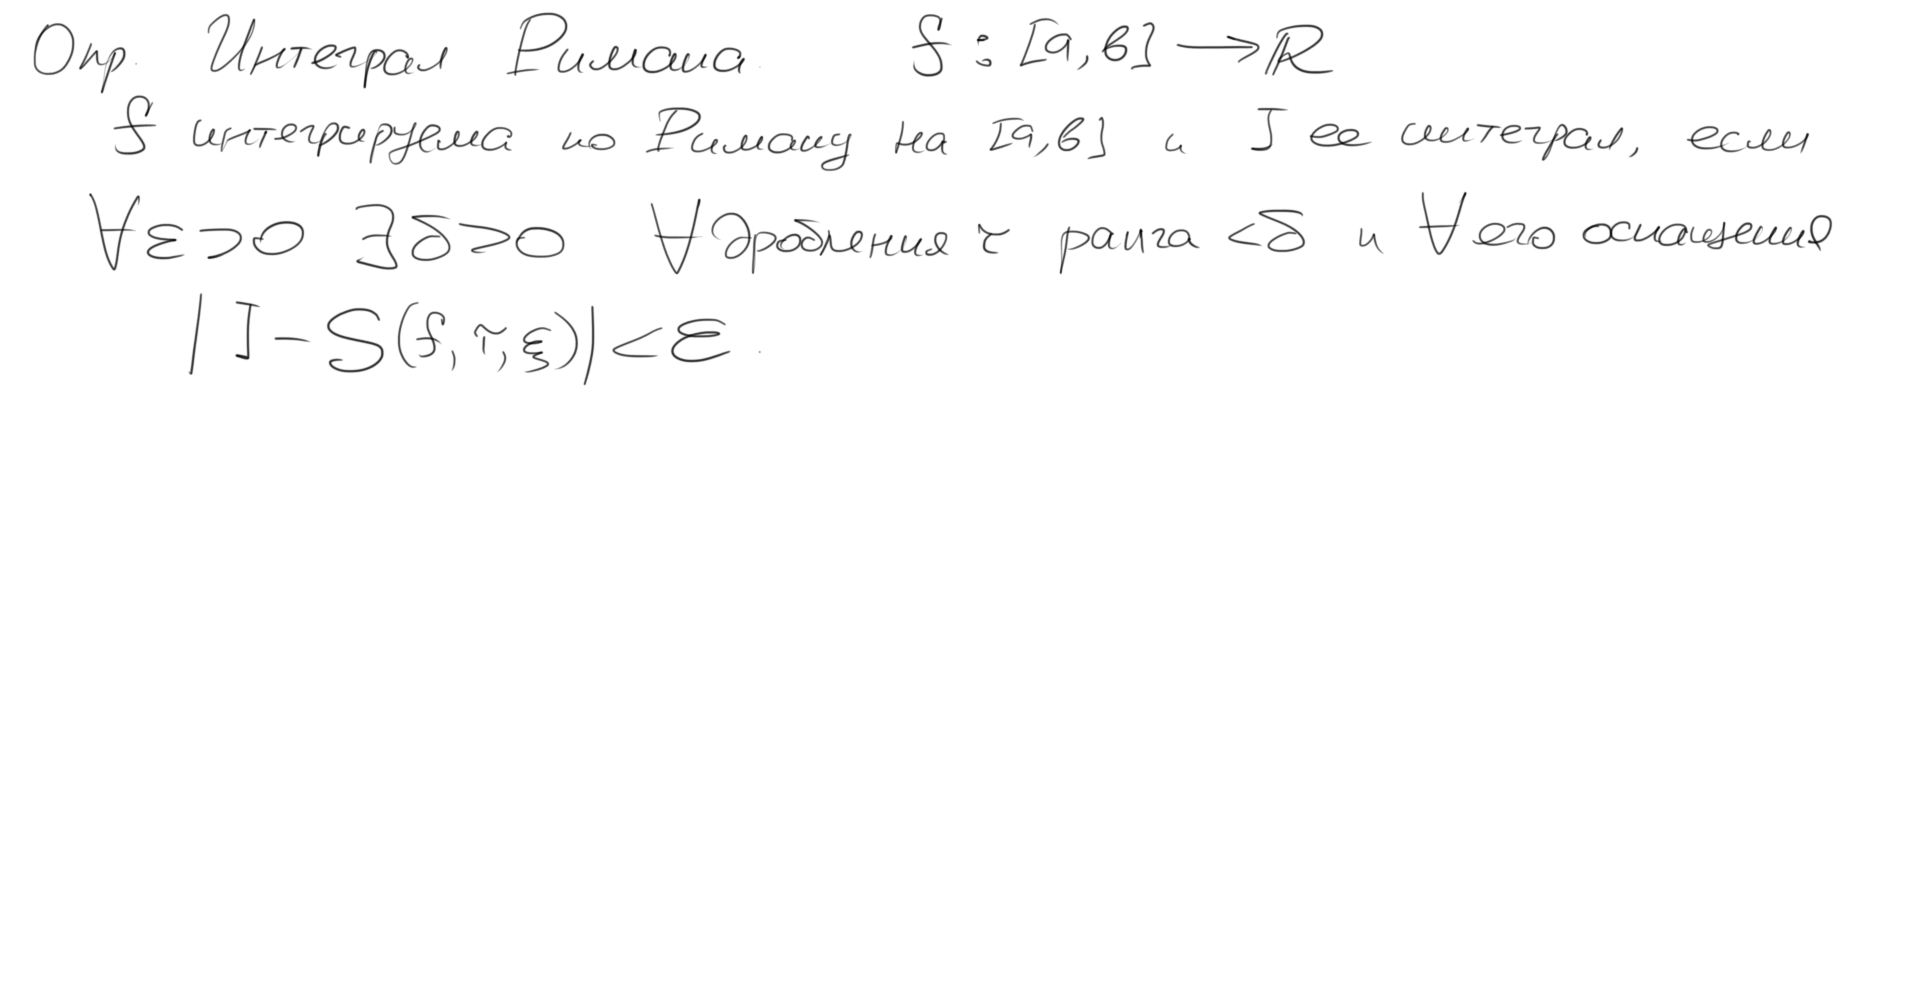 Опр. Интеграл Римана. f : [a, b] ⟶ ℝ
f интегрируема по Риману на [a, b] и I ее интеграл, если
∀ε>0 ∃δ>0 ∀ дробления τ ранга <δ и ∀ его оснащения
|I - S(f, τ, ξ)| < ε.